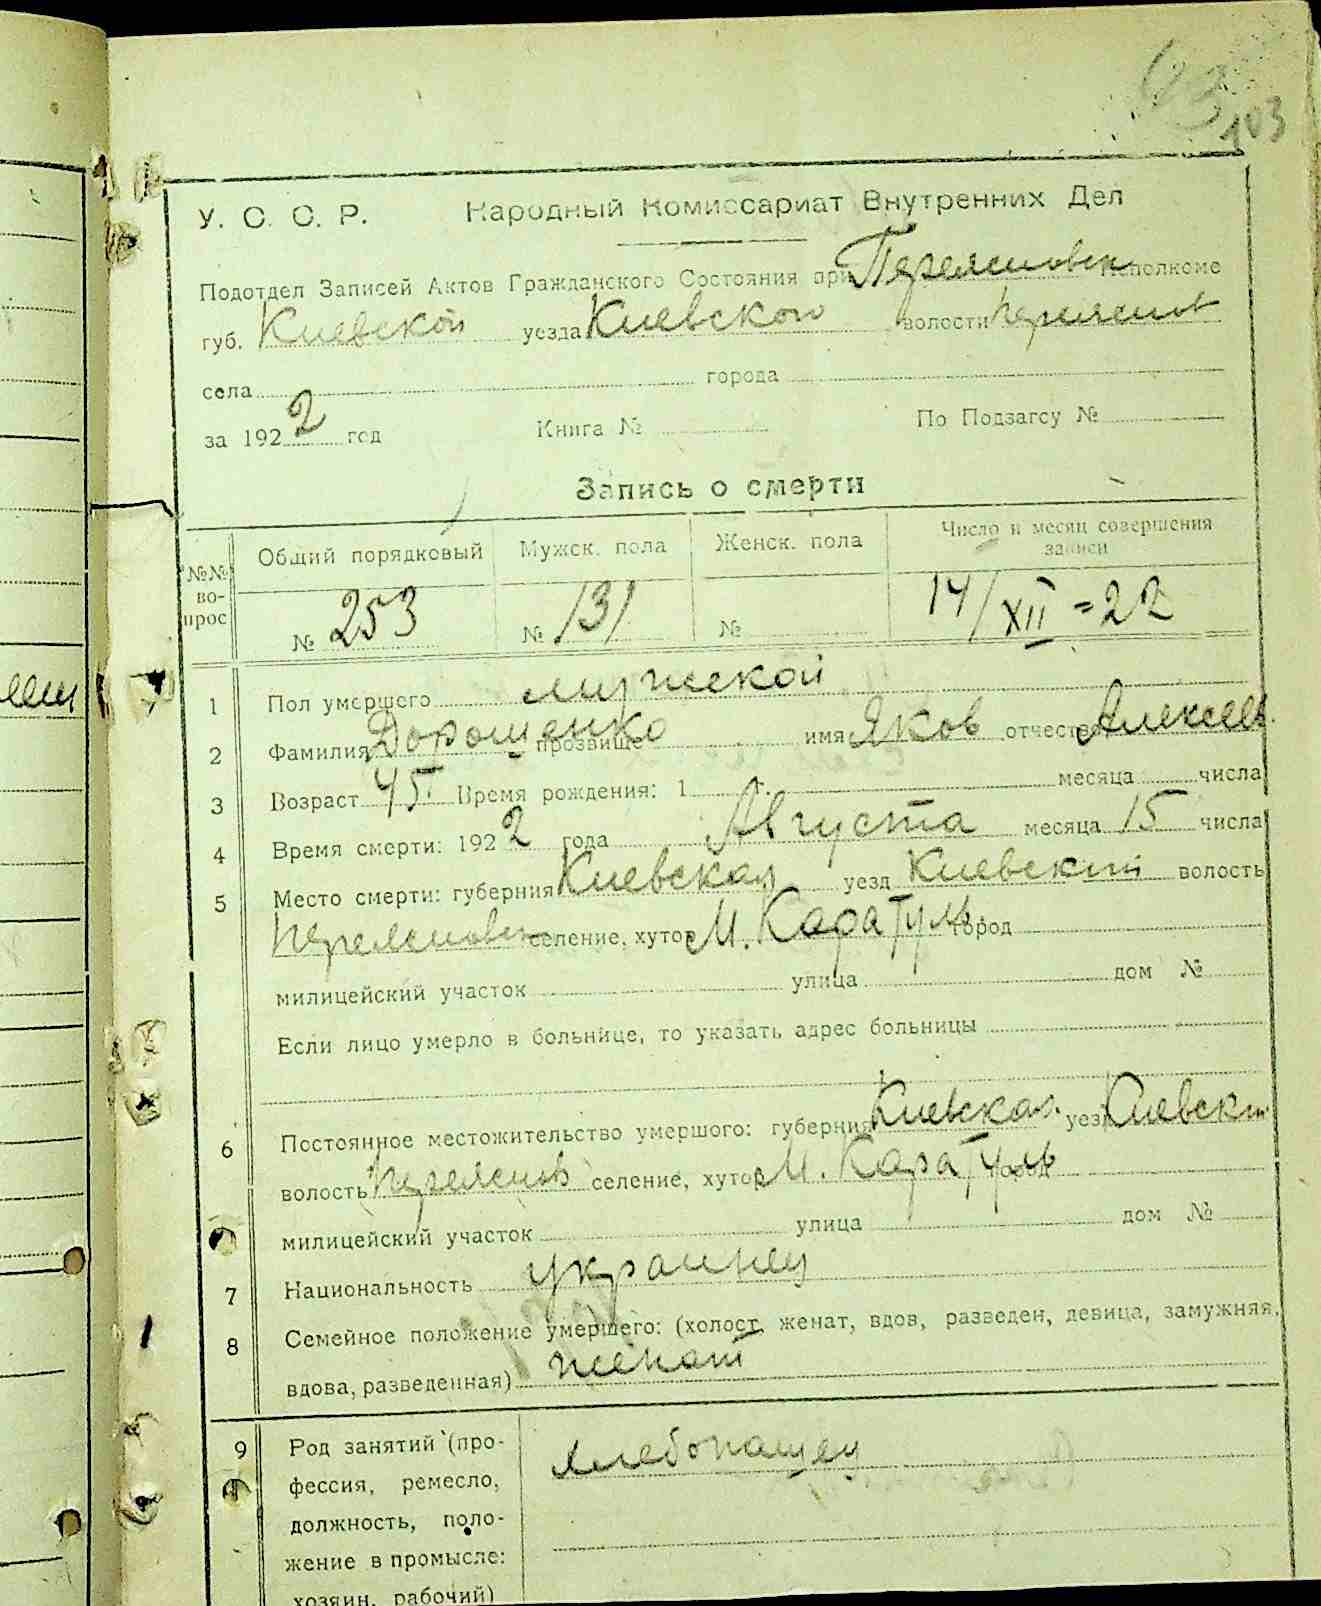 103
У. С. С. Р. Народный Комиссариат Внутренних Дел
Подотдел Записей Актов Гражданского Состояния при Переясловск Исполкоме
губ. Киевской уезда Киевского волости Переяслов
села города
за 1922 год Книга № По Подзагсу №
Запись о смерти
№№ вопрос Общий порядковый Мужск. пола Женск. пола Число и месяц совершения записи
№ 253 № 131 № 14/XII=22
1 Пол умершего мужской
2 Фамилия Дорошенко прозвище имя Яков отчество Алексеев.
3 Возраст 45. Время рождения: 1 г. месяца числа
4 Время смерти: 1922 года Августа месяца 15 числа
5 Место смерти: губерния Киевская уезд Киевский волость
Переясловск селение, хутор М. Каратуль город
милицейский участок улица дом №
Если лицо умерло в больнице, то указать адрес больницы
6 Постоянное местожительство умершого: губерния Киевская уезд Киевский
волость Переяслов селение, хутор М. Каратуль город
милицейский участок улица дом №
7 Национальность украинец
8 Семейное положение умершего: (холост, женат, вдов, разведен, девица, замужняя,
вдова, разведенная) женат
9 Род занятий (про-
фессия, ремесло,
должность, поло-
жение в промысле:
хозяин, рабочий)
хлебопашец